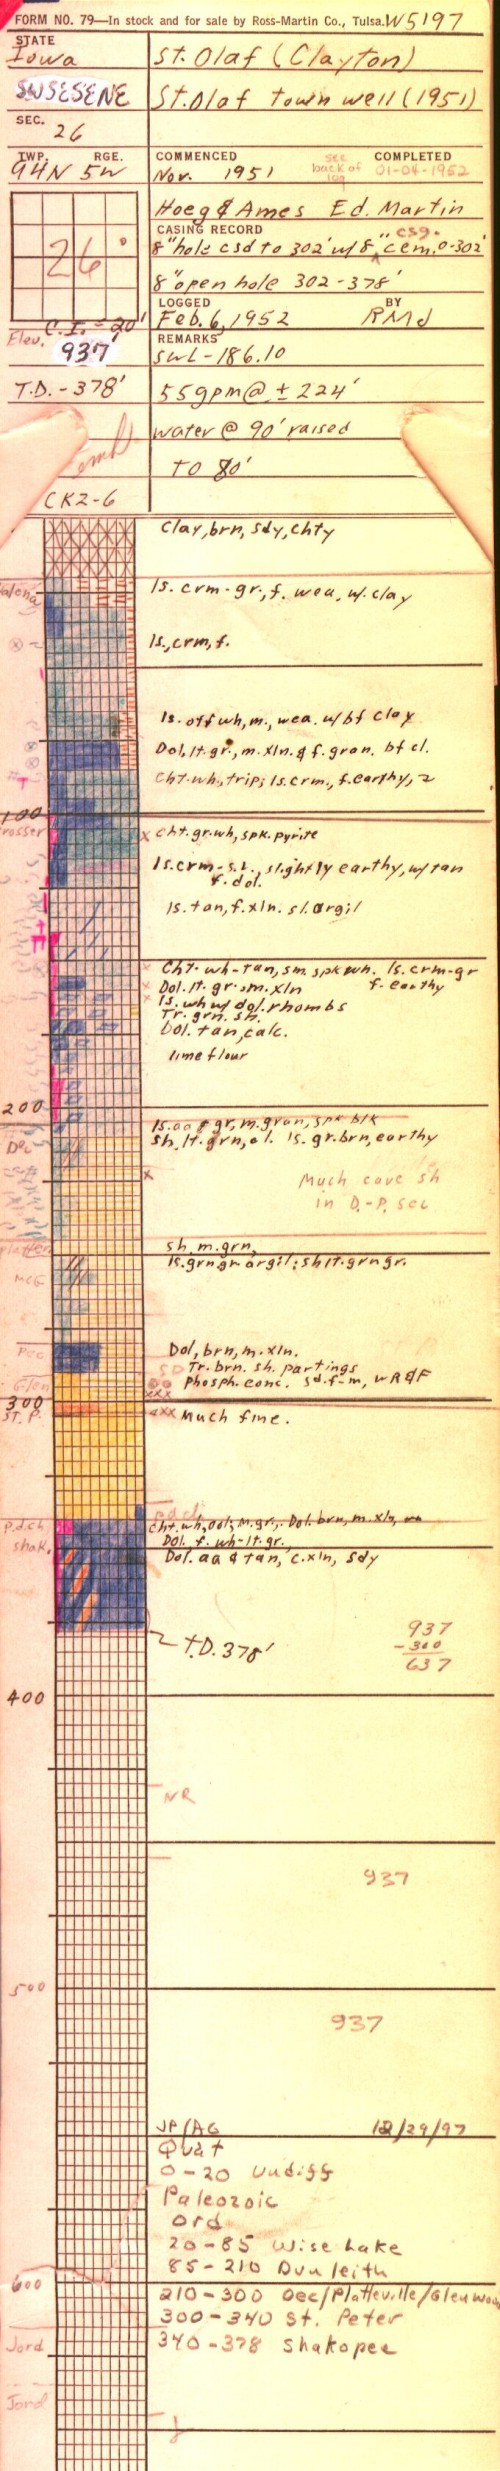 FORM NO. 79—In stock and for sale by Ross-Martin Co., Tulsa. W5197
STATE
Iowa
St. Olaf (Clayton)
SWSESENE
St. Olaf town well (1951)
SEC.
26
TWP. RGE.
94N 5W
COMMENCED
Nov. 1951
see back of log
COMPLETED
01-04-1952
Hoeg & Ames Ed. Martin
CASING RECORD
csg.
8" hole csd to 302' w/ 8" cem. 0-302'
8" open hole 302-378'
26
LOGGED
Feb. 6, 1952
BY
RMJ
C.I. = 20'
Elev.
937'
REMARKS
SWL-186.10
T.D. - 378'
55gpm@ ± 224'
water @ 90' raised
to 80'
CK2-6
Clay, brn, sdy, chty
ls. crm-gr, f. wea. w. clay
ls., crm, f.
ls. off wh, m., wea. w/bf clay
Dol, lt. gr., m. xln. & f. gran. bf cl.
Cht. wh, trip; ls. crm., f. earthy, 2
100
rosser
x Cht. gr. wh, spk. pyrite
ls. crm - s.l., slightly earthy, w/ tan
f. dol.
ls. tan, f. xln. sl. argil
Cht. wh-tan, sm. spk wh. ls. crm-gr
f. earthy
Dol. lt. gr. sm. xln
ls. wh w/ dol. rhombs
Tr. grn. sh.
Dol. tan, calc.
lime flour
200
ls. aa & gr, m. gran, spk blk
Sh. lt. grn, ol. ls. gr. brn, earthy
Dec
x
Much cave sh
in D.-P. sec
platter
sh, m. grn,
ls. grn gr argil; sh lt. grn gr.
McG
Pec
Dol, brn, m. xln.
SD
Tr. brn. sh. partings
Glen
Phosph. conc. sd. f-m, w R&F
xxx
300
St. P.
xx Much fine.
p.d.ch
p.d.ch
Cht. wh, ool; m. gr,. Dol. brn, m. xln,
shak.
Dol. f. wh-lt. gr.
Dol. aa & tan, c. xln, sdy
T.D. 378'
937
-300
637
400
NR
937
500
937
JP/AG 12/29/97
Quat
0-20 Undiff
Paleozoic
Ord
20-85 Wise Lake
85-210 Dunleith
600
210-300 Dec/Platteville/Glenwood
300-340 St. Peter
340-378 Shakopee
Jord
Jord
J